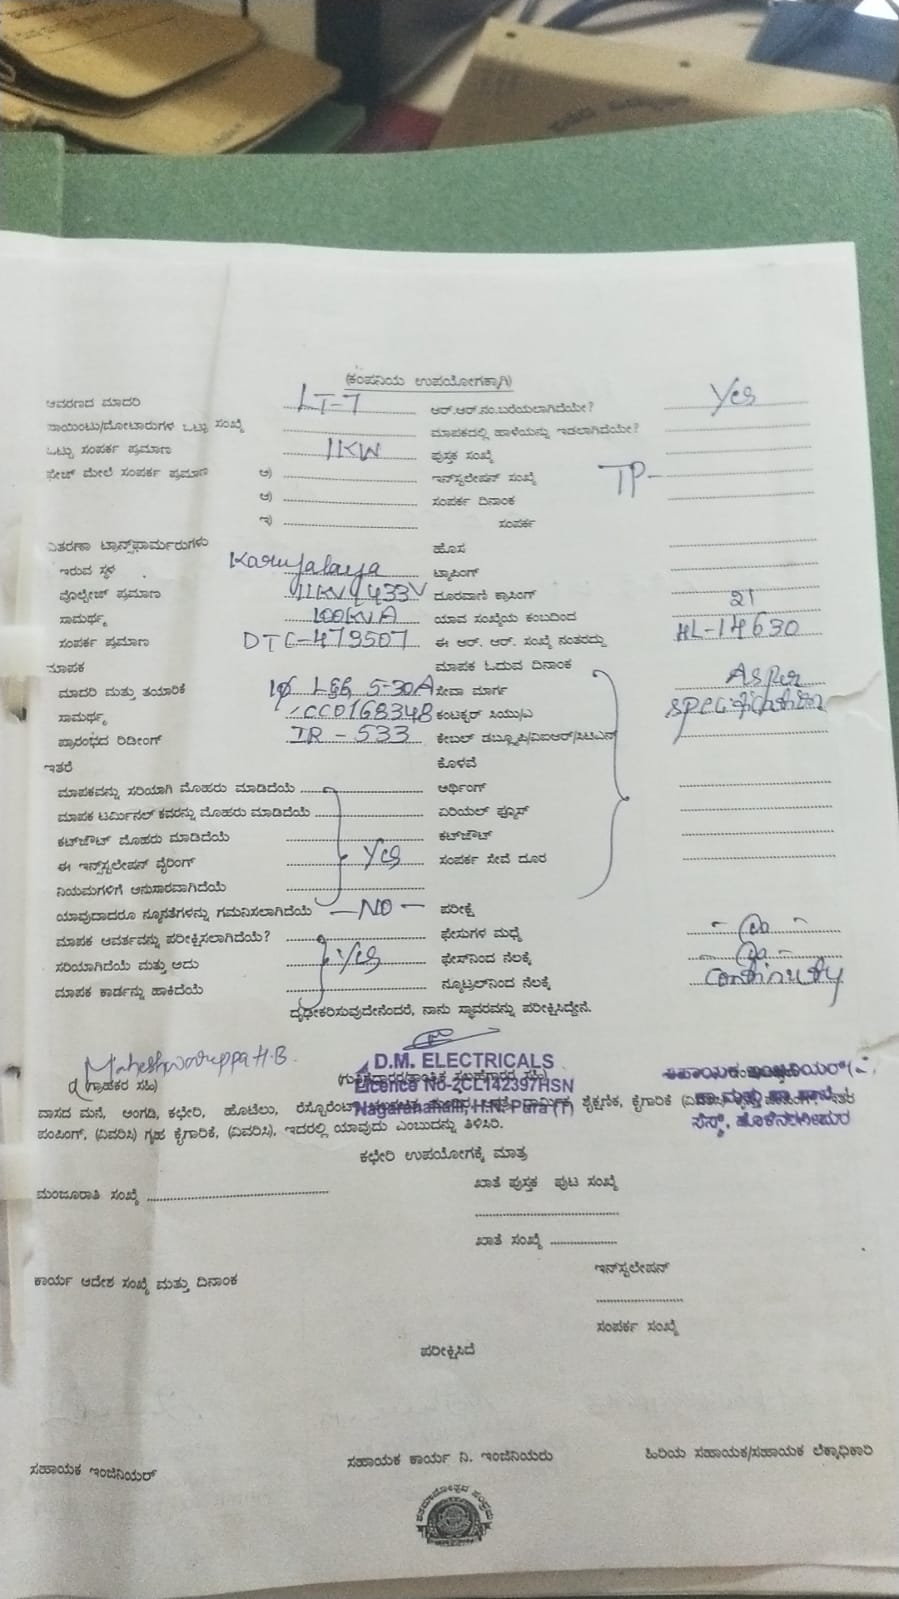 (ಕಂಪನಿಯ ಉಪಯೋಗಕ್ಕಾಗಿ)
ಆವರಣದ ಮಾದರಿ LT-7 ಆರ್.ಆರ್.ನಂ.ಬರೆಯಲಾಗಿದೆಯೇ? Yes
ಸಾಯಿಂಟು/ಮೋಟಾರುಗಳ ಒಟ್ಟು ಸಂಖ್ಯೆ ಮಾಪಕದಲ್ಲಿ ಹಾಳೆಯನ್ನು ಇಡಲಾಗಿದೆಯೇ?
ಒಟ್ಟು ಸಂಪರ್ಕ ಪ್ರಮಾಣ 1KW ಪುಸ್ತಕ ಸಂಖ್ಯೆ
ಫೇಜ್ ಮೇಲೆ ಸಂಪರ್ಕ ಪ್ರಮಾಣ ಅ) ಇನ್‌ಸ್ಟಲೇಷನ್ ಸಂಖ್ಯೆ TP-
ಆ) ಸಂಪರ್ಕ ದಿನಾಂಕ
ಇ) ಸಂಪರ್ಕ
ವಿತರಣಾ ಟ್ರಾನ್ಸ್‌ಫಾರ್ಮರುಗಳು ಹೊಸ
ಇರುವ ಸ್ಥಳ ಟ್ಯಾಪಿಂಗ್
ವೋಲ್ಟೇಜ್ ಪ್ರಮಾಣ 11KV/433V ದೂರವಾಣಿ ಕ್ರಾಸಿಂಗ್
ಸಾಮರ್ಥ್ಯ 100KVA ಯಾವ ಸಂಖ್ಯೆಯ ಕಂಬದಿಂದ 21
ಸಂಪರ್ಕ ಪ್ರಮಾಣ DTC-479507 ಈ ಆರ್. ಆರ್. ಸಂಖ್ಯೆ ನಂತರದ್ದು HL-14630
ಮಾಪಕ ಮಾಪಕ ಓದುವ ದಿನಾಂಕ
ಮಾದರಿ ಮತ್ತು ತಯಾರಿಕೆ 1ϕ L&G 5-30A ಸೇವಾ ಮಾರ್ಗ As Per
ಸಾಮರ್ಥ್ಯ CC0168348 ಕಂಟಕ್ಟರ್ ಸಿಯು/ಎ specification
ಪ್ರಾರಂಭದ ರಿಡೀಂಗ್ IR - 533 ಕೇಬಲ್ ಡಬ್ಲ್ಯೂಪಿ/ವಿಐಆರ್/ಸಿಟಿಎಸ್
ಇತರೆ ಕೊಳವೆ
ಮಾಪಕವನ್ನು ಸರಿಯಾಗಿ ಮೊಹರು ಮಾಡಿದೆಯೆ ಅರ್ಥಿಂಗ್
ಮಾಪಕ ಟರ್ಮಿನಲ್ ಕವರನ್ನು ಮೊಹರು ಮಾಡಿದೆಯೆ ಏರಿಯಲ್ ಫ್ಯೂಸ್
ಕಟ್‌ಔಟ್ ಮೊಹರು ಮಾಡಿದೆಯೆ ಕಟ್‌ಔಟ್
ಈ ಇನ್‌ಸ್ಟಲೇಷನ್ ವೈರಿಂಗ್ Yes ಸಂಪರ್ಕ ಸೇವೆ ದೂರ
ನಿಯಮಗಳಿಗೆ ಅನುಸಾರವಾಗಿದೆಯೆ
ಯಾವುದಾದರೂ ನ್ಯೂನತೆಗಳನ್ನು ಗಮನಿಸಲಾಗಿದೆಯೆ —NO— ಪರೀಕ್ಷೆ
ಮಾಪಕ ಆವರ್ತವನ್ನು ಪರೀಕ್ಷಿಸಲಾಗಿದೆಯೆ? ಫೇಸುಗಳ ಮಧ್ಯೆ
ಸರಿಯಾಗಿದೆಯೆ ಮತ್ತು ಅದು Yes ಫೇಸ್‌ನಿಂದ ನೆಲಕ್ಕೆ
ಮಾಪಕ ಕಾರ್ಡನ್ನು ಹಾಕಿದೆಯೆ ನ್ಯೂಟ್ರಲ್‌ನಿಂದ ನೆಲಕ್ಕೆ continuity
ದೃಢೀಕರಿಸುವುದೇನೆಂದರೆ, ನಾನು ಸ್ಥಾವರವನ್ನು ಪರೀಕ್ಷಿಸಿದ್ದೇನೆ.
Maheshwarappa H.B.
D.M. ELECTRICALS
(ಗ್ರಾಹಕರ ಸಹಿ)
Licence No-2CL142397HSN
Nagaranahalli, H.N. Pura (T)
ವಾಸದ ಮನೆ, ಅಂಗಡಿ, ಕಛೇರಿ, ಹೋಟೆಲು, ರೆಸ್ಟೋರೆಂಟ್ ಧಾರ್ಮಿಕ, ಶೈಕ್ಷಣಿಕ, ಕೈಗಾರಿಕೆ
ಸೆಸ್ಕ್, ಹೊಳೆನರಸೀಪುರ
ಪಂಪಿಂಗ್, (ವಿವರಿಸಿ) ಗೃಹ ಕೈಗಾರಿಕೆ, (ವಿವರಿಸಿ), ಇದರಲ್ಲಿ ಯಾವುದು ಎಂಬುದನ್ನು ತಿಳಿಸಿರಿ.
ಕಛೇರಿ ಉಪಯೋಗಕ್ಕೆ ಮಾತ್ರ
ಮಂಜೂರಾತಿ ಸಂಖ್ಯೆ ಖಾತೆ ಪುಸ್ತಕ ಪುಟ ಸಂಖ್ಯೆ
ಖಾತೆ ಸಂಖ್ಯೆ
ಕಾರ್ಯ ಆದೇಶ ಸಂಖ್ಯೆ ಮತ್ತು ದಿನಾಂಕ ಇನ್‌ಸ್ಟಲೇಷನ್
ಸಂಪರ್ಕ ಸಂಖ್ಯೆ
ಪರೀಕ್ಷಿಸಿದೆ
ಸಹಾಯಕ ಇಂಜಿನಿಯರ್ ಸಹಾಯಕ ಕಾರ್ಯ ನಿ. ಇಂಜಿನಿಯರು ಹಿರಿಯ ಸಹಾಯಕ/ಸಹಾಯಕ ಲೆಕ್ಕಾಧಿಕಾರಿ